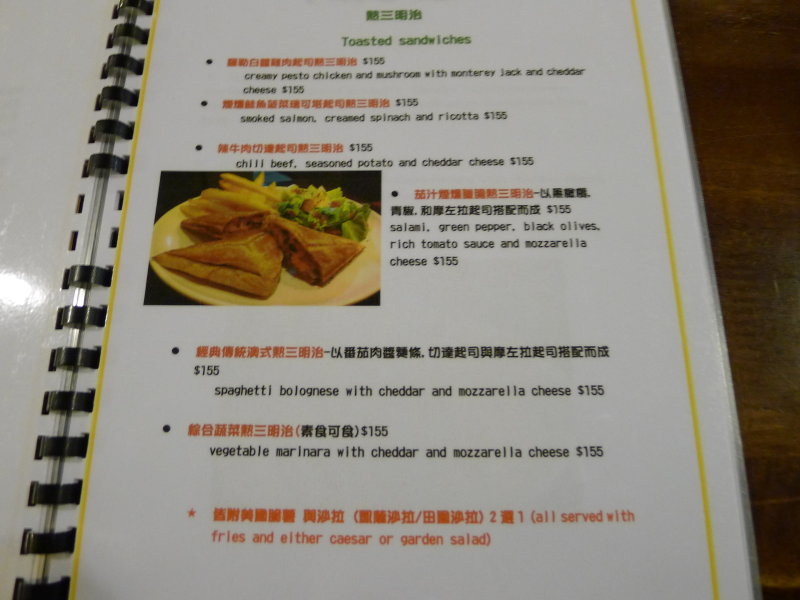 熱三明治
Toasted sandwiches
羅勒白醬雞肉起司熱三明治 $155
creamy pesto chicken and mushroom with monterey jack and cheddar
cheese $155
煙燻鮭魚菠菜瑞可塔起司熱三明治 $155
smoked salmon, creamed spinach and ricotta $155
辣牛肉切達起司熱三明治 $155
chili beef, seasoned potato and cheddar cheese $155
茄汁煙燻臘腸熱三明治-以黑橄欖,
青椒,和摩左拉起司搭配而成 $155
salami, green pepper, black olives,
rich tomato sauce and mozzarella
cheese $155
經典傳統澳式熱三明治-以番茄肉醬麵條,切達起司與摩左拉起司搭配而成
$155
spaghetti bolognese with cheddar and mozzarella cheese $155
綜合蔬菜熱三明治(素食可食)$155
vegetable marinara with cheddar and mozzarella cheese $155
★ 皆附美國脆薯 與沙拉 (凱薩沙拉/田園沙拉) 2 選 1 (all served with
fries and either caesar or garden salad)